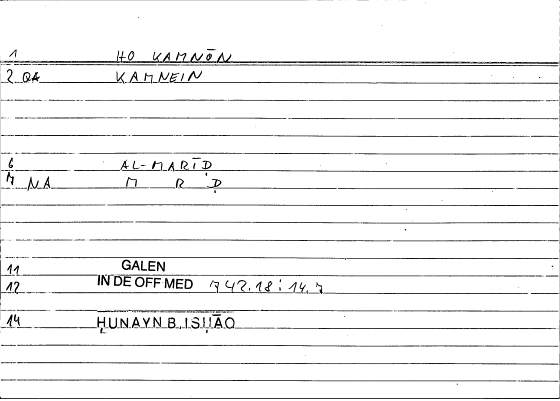 1 HO KAMNŌN
2 QA KAMNEIN
6 AL-MARĪḌ
7 NA M R Ḍ
11 GALEN
12 IN DE OFF MED 742.18; 14.7
14 ḤUNAYN B. ISḤĀQ